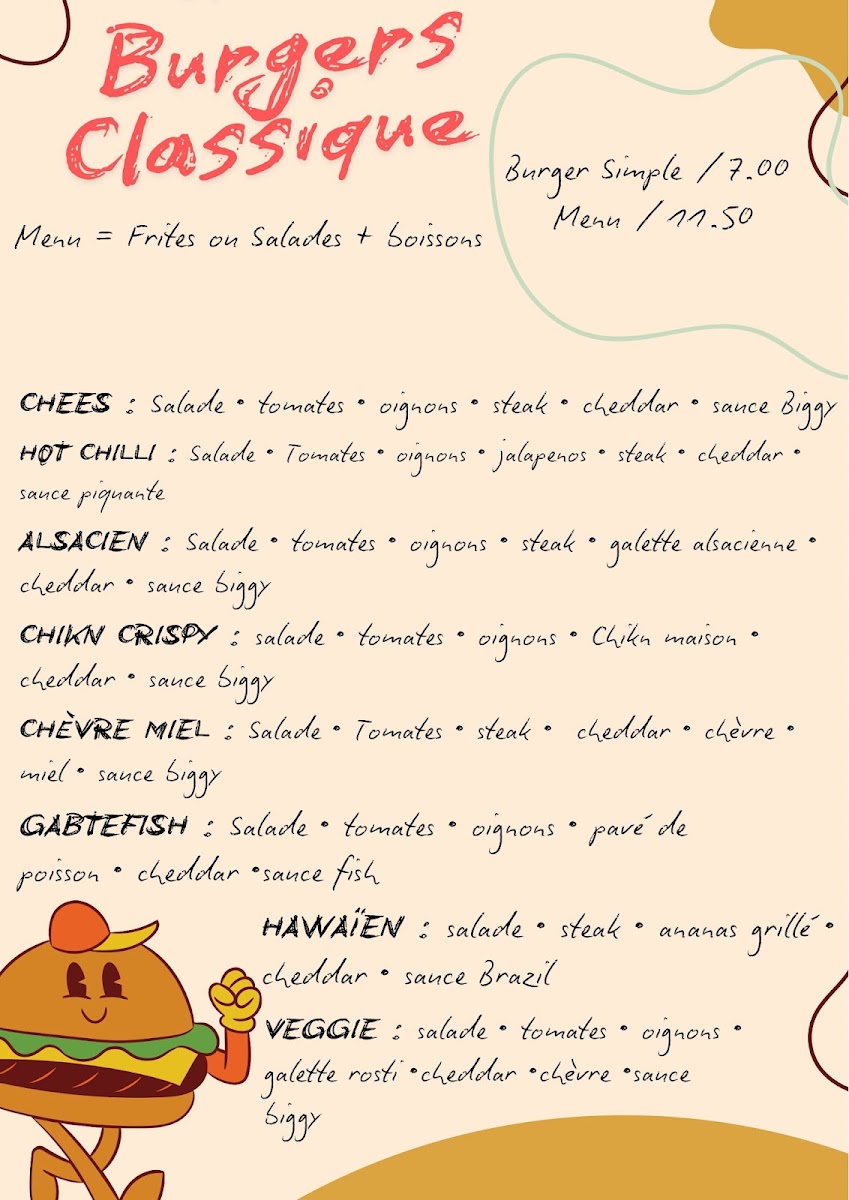 Burgers
Classique
Burger Simple / 7.00
Menu / 11.50
Menu = Frites ou Salades + boissons
CHEES : Salade • tomates • oignons • steak • cheddar • sauce Biggy
HOT CHILLI : Salade • Tomates • oignons • jalapenos • steak • cheddar •
sauce piquante
ALSACIEN : Salade • tomates • oignons • steak • galette alsacienne •
cheddar • sauce biggy
CHIKN CRISPY : salade • tomates • oignons • Chikn maison •
cheddar • sauce biggy
CHÈVRE MIEL : Salade • Tomates • steak • cheddar • chèvre •
miel • sauce biggy
GABTEFISH : Salade • tomates • oignons • pavé de
poisson • cheddar •sauce fish
HAWAÏEN : salade • steak • ananas grillé •
cheddar • sauce Brazil
VEGGIE : salade • tomates • oignons •
galette rosti •cheddar •chèvre •sauce
biggy